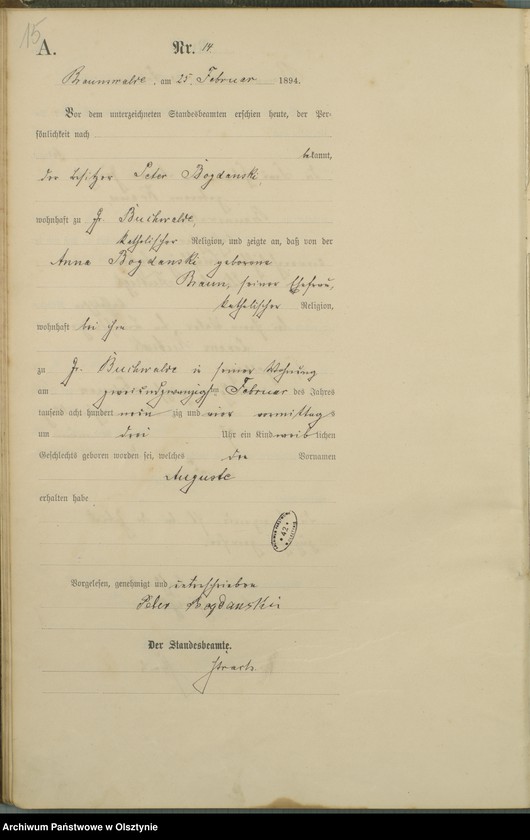 15
A.
Nr. 14
Braunswalde, am 25. Februar 1894.
Vor dem unterzeichneten Standesbeamten erschien heute, der Per-
sönlichkeit nach
bekannt,
der Besitzer Peter Bogdanski,
wohnhaft zu Gr. Buchwalde,
katholischer Religion, und zeigte an, daß von der
Anna Bogdanski geborene
Braun, seiner Ehefrau,
katholischer Religion,
wohnhaft bei ihm
zu Gr. Buchwalde in seiner Wohnung
am zweiundzwanzigsten Februar des Jahres
tausend acht hundert neun zig und vier vormittags
um drei Uhr ein Kind weiblichen
Geschlechts geboren worden sei, welches den Vornamen
Auguste
erhalten habe
42
Vorgelesen, genehmigt und unterschrieben
Peter Bogdanski
Der Standesbeamte.
Archiwum Państwowe w Olsztynie